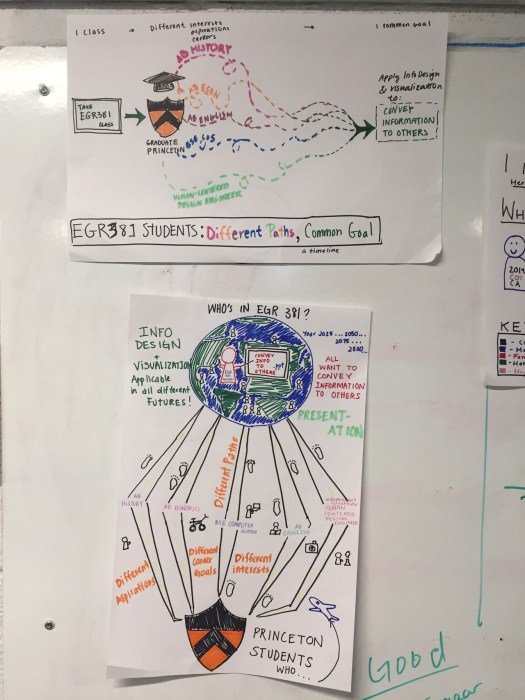 1 Class → Different interests → 1 Common Goal
aspirations
careers
AB HISTORY
AB ECON
AB ENGLISH
BSE COS
HUMAN-CENTERED
DESIGN ENGINEER
TAKE
EGR381
CLASS
GRADUATE
PRINCETON
Apply Info Design
& visualization
to:
CONVEY
INFORMATION
TO OTHERS
EGR381 STUDENTS: Different Paths, Common Goal
a timeline
WHO'S IN EGR 381?
INFO
DESIGN
+
VISUALIZATION
Applicable
in all different
FUTURES!
CONVEY
INFO TO
OTHERS
.ppt
Year 2025... 2050...
2075...
ALL
WANT TO
CONVEY
INFORMATION
TO OTHERS
PRESENT-
ATION
Different Paths
AB
HISTORY
AB ECONOMICS
BSE COMPUTER
SCIENCE
AB
ENGLISH
HUMAN
CENTERED
DESIGN
ENGINEER
Different
Aspirations
Different
Career
Goals
Different
interests
PRINCETON
STUDENTS
WHO...
WH
KE
Good